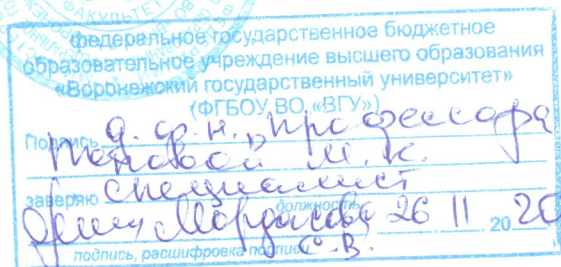 ФАКУЛЬТЕТ
федеральное государственное бюджетное
образовательное учреждение высшего образования
«Воронежский государственный университет»
(ФГБОУ ВО «ВГУ»)
Подпись д. ф. н., профессора
Поповой М. К.
заверяю специалист
должность
Мордасова 26 11 2020
подпись, расшифровка подписи С.В.